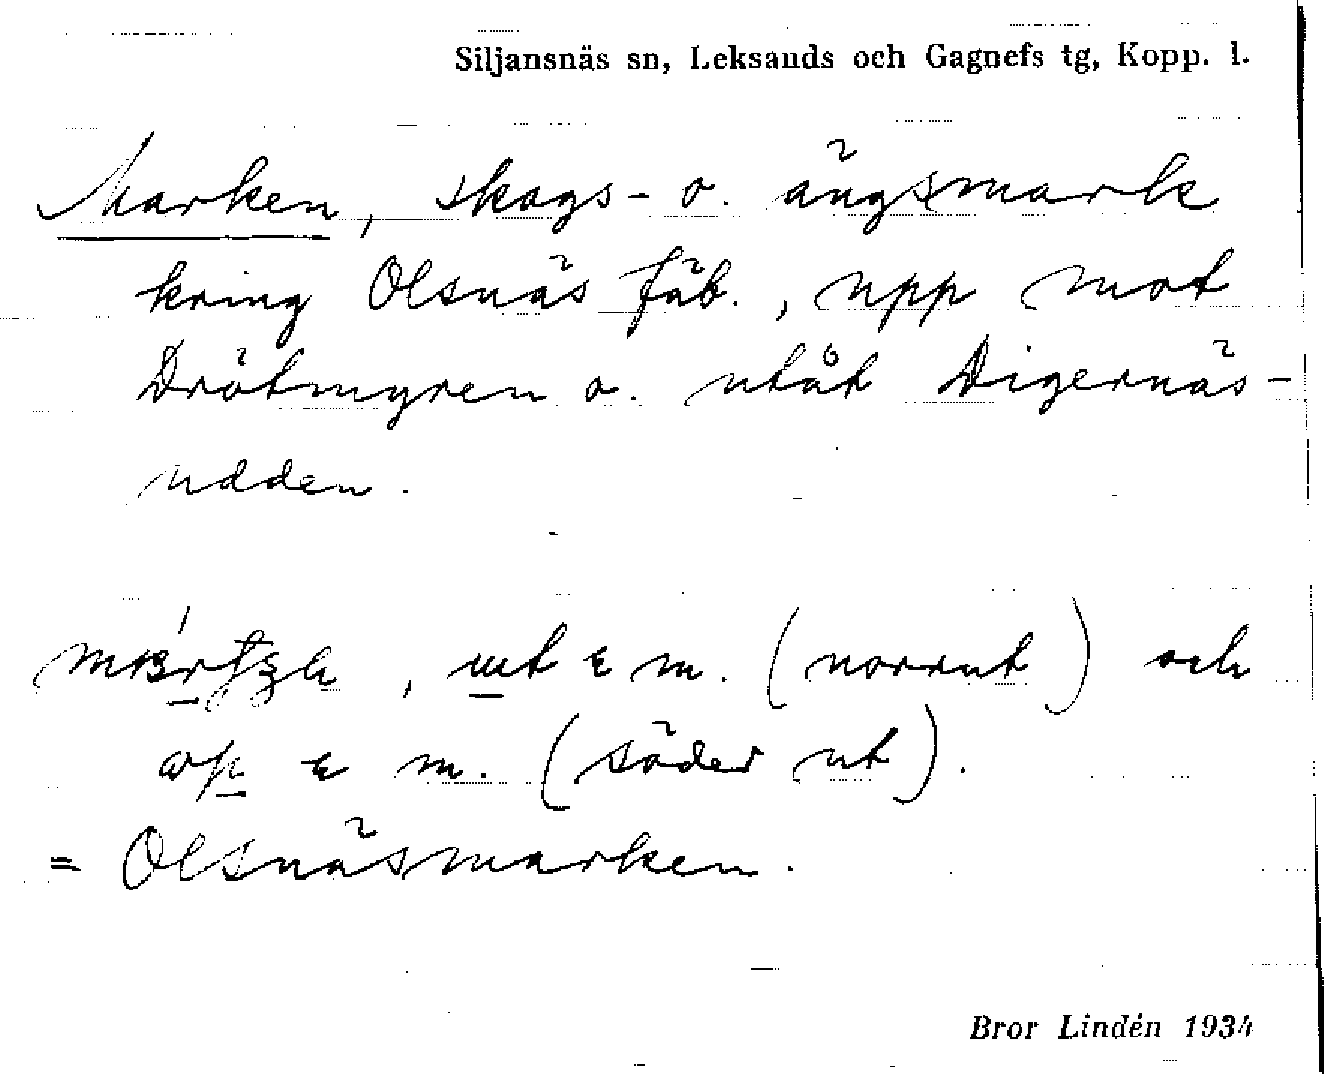 Siljansnäs sn, Leksands och Gagnefs tg, Kopp. l.
Marken, skogs- o. ängsmark
kring Olsnäs fäb., upp mot
Drötmyren o. utåt Digernäs-
udden.
, ut ε m. (norrut) och
ε m. (söder ut).
= Olsnäsmarken.
Bror Lindén 1934